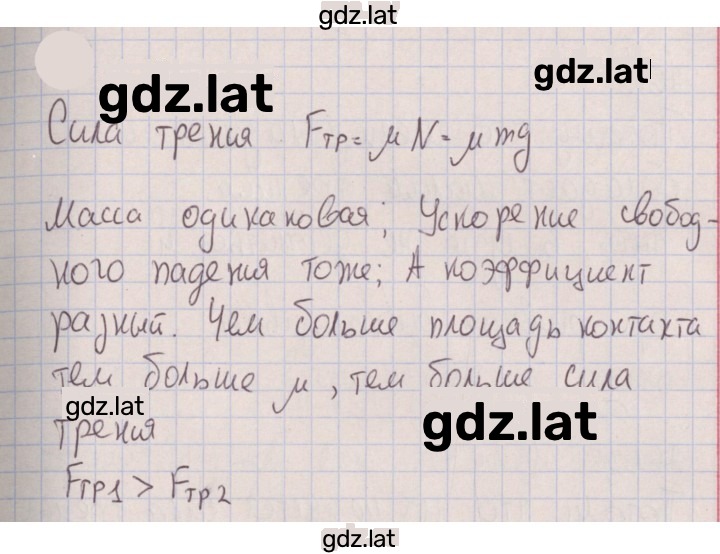 gdz.lat
gdz.lat
gdz.lat
Сила трения Fтр = μN = μmg
Масса одинаковая; Ускорение свобод-
ного падения тоже; А коэффициент
разный. Чем больше площадь контакта
тем больше μ, тем больше сила
gdz.lat
gdz.lat
трения
Fтр1 > Fтр2
gdz.lat